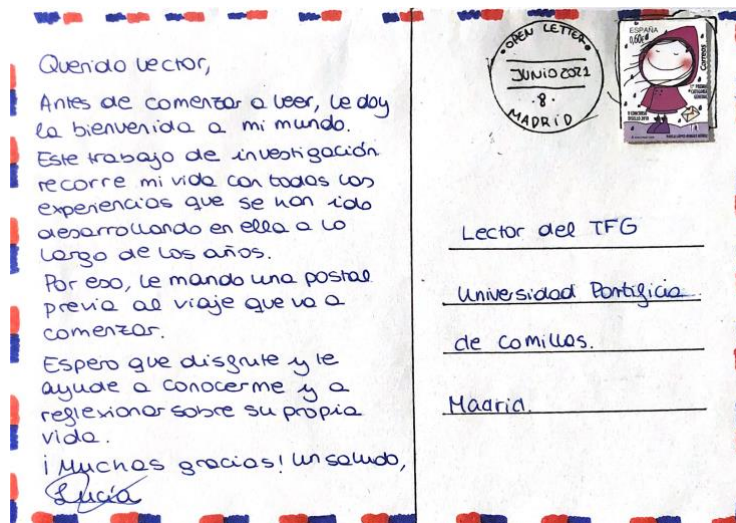 Querido lector,
Antes de comenzar a leer, le doy
la bienvenida a mi mundo.
Este trabajo de investigación
recorre mi vida con todas las
experiencias que se han ido
desarrollando en ella a lo
largo de los años.
Por eso, le mando una postal
previa al viaje que va a
comenzar.
Espero que disfrute y le
ayude a conocerme y a
reflexionar sobre su propia
vida.
¡Muchas gracias! Un saludo,
Lucía
OPEN LETTER
JUNIO 2021
.8.
MADRID
ESPAÑA
0,60€
Correos
Lector del TFG
Universidad Pontificia
de Comillas.
Madrid.